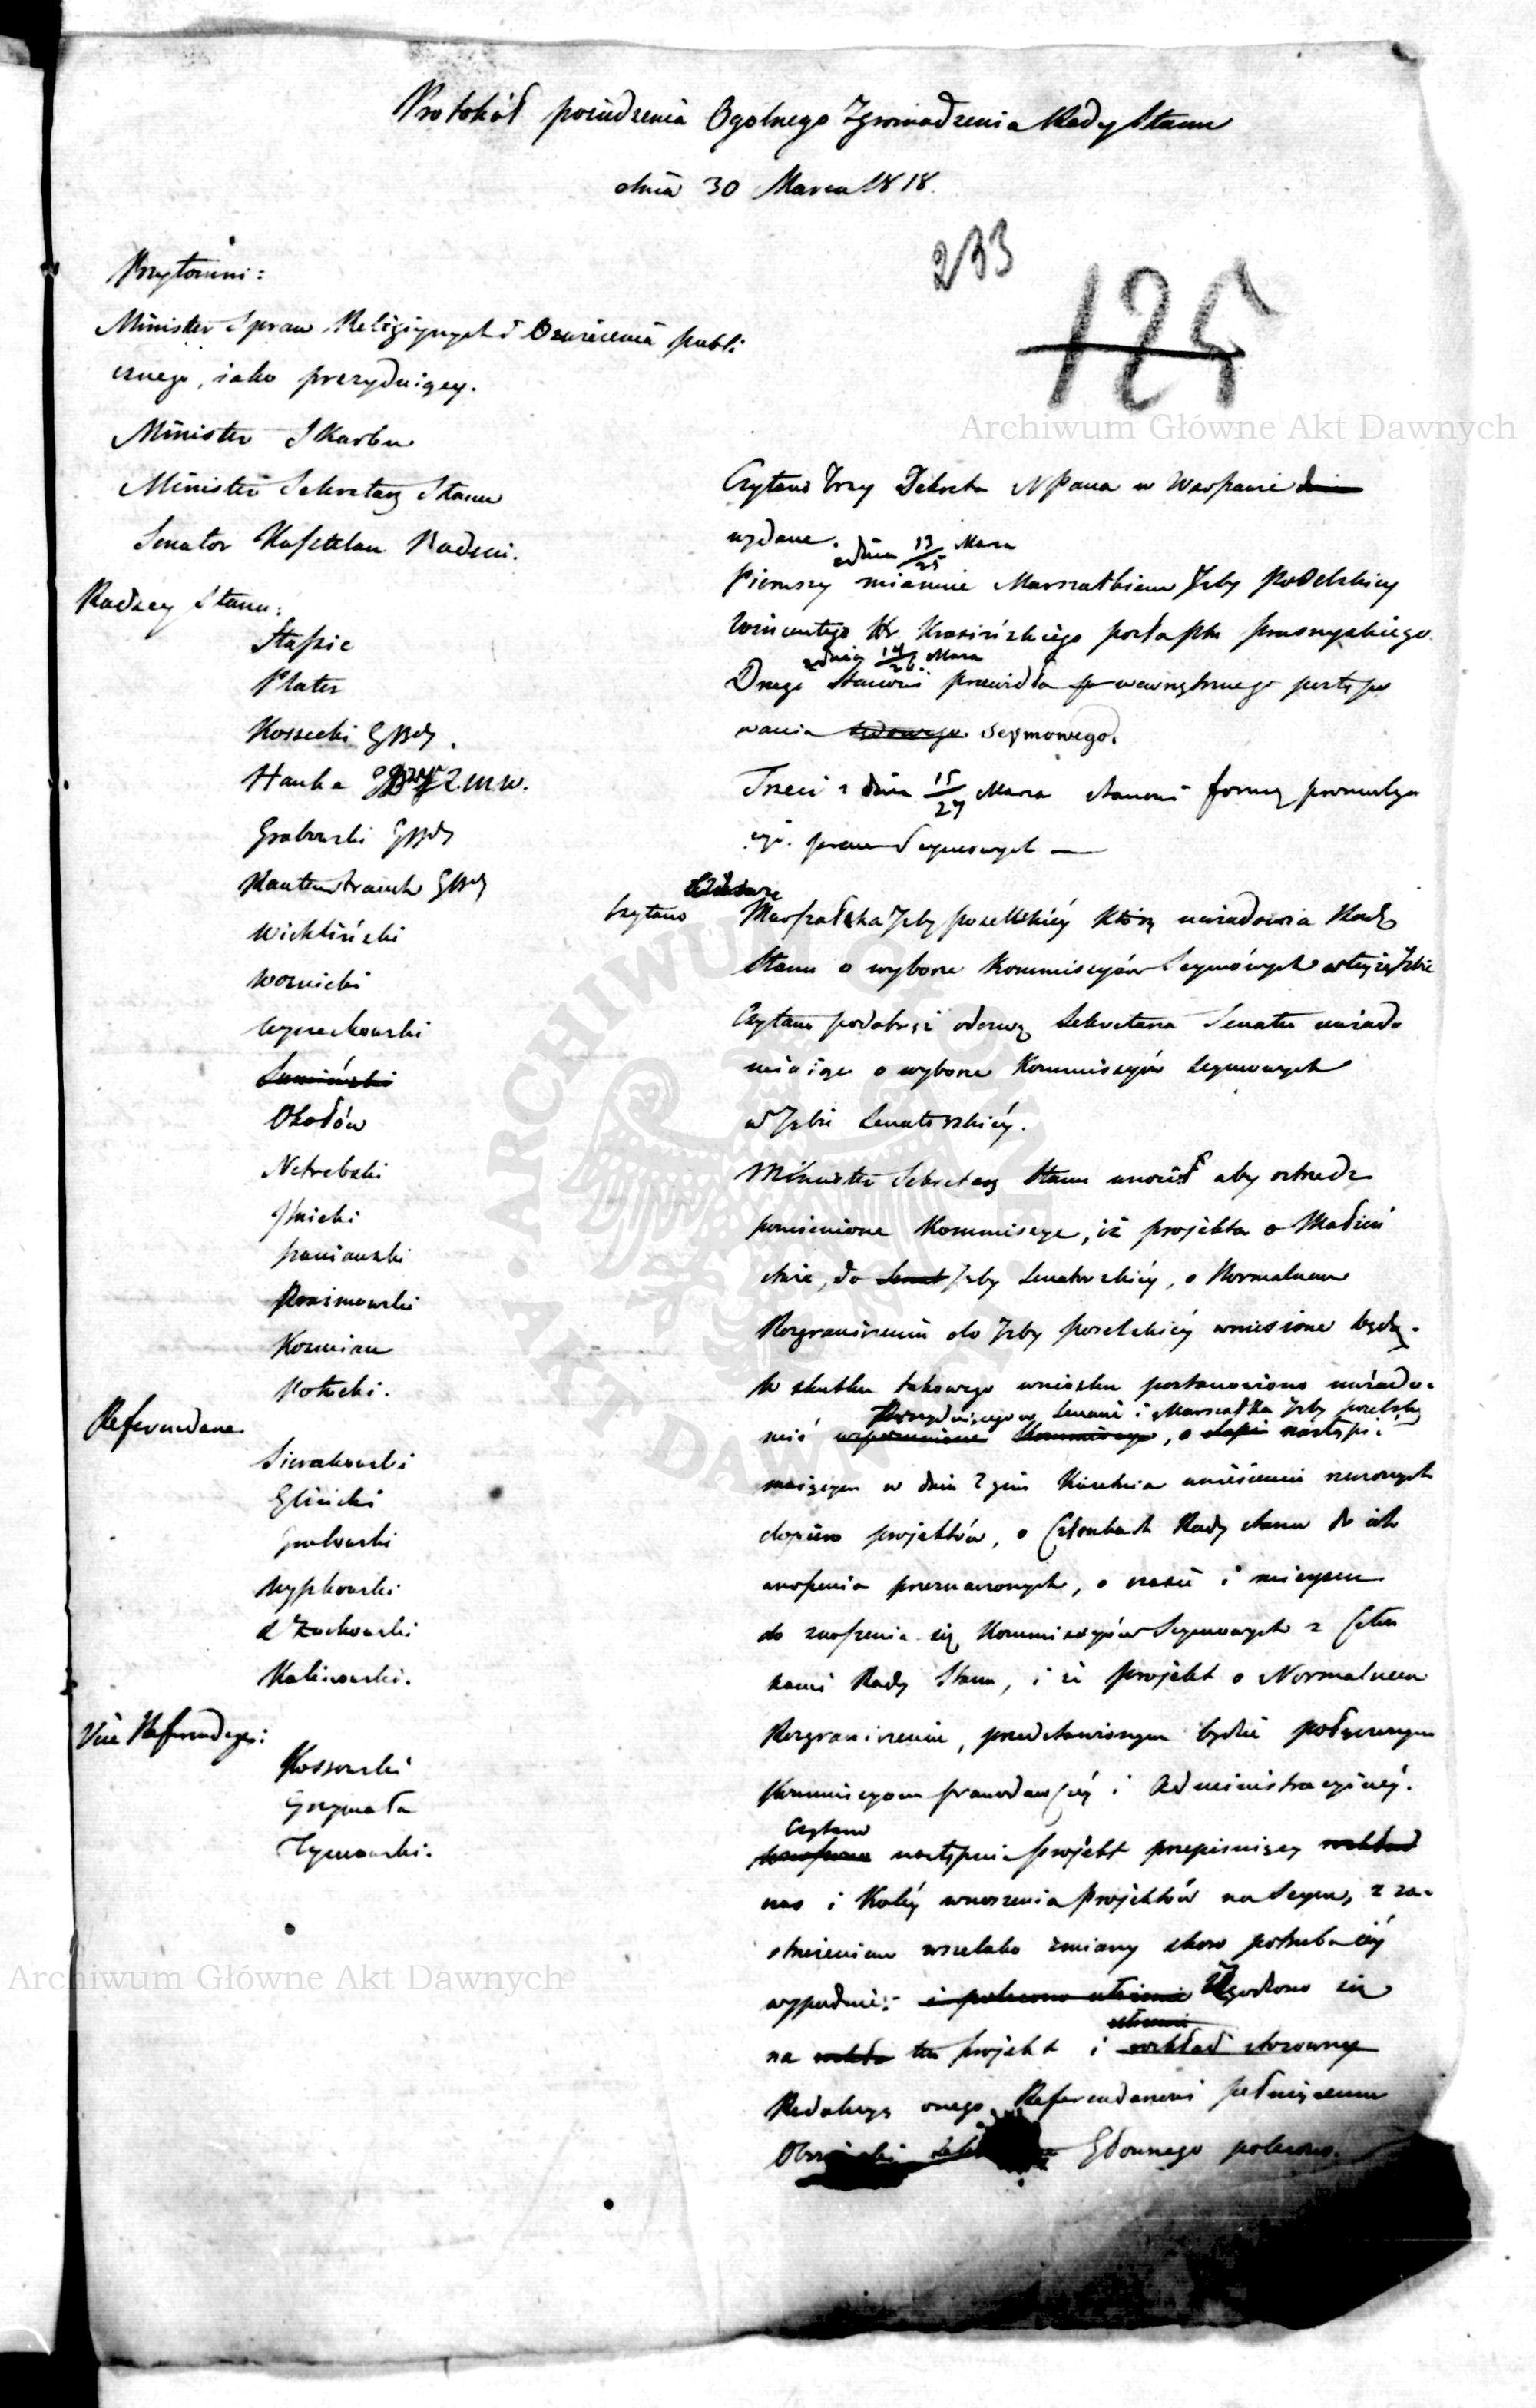 Protokół posiedzenia Ogolnego Zgromadzenia Rady Stanu
dnia 30 Marca 1818.
233
125
Przytomni:
Minister Spraw Religijnych i Oświecenia publi
cznego, iako prezyduiący.
Minister Skarbu
Minister Sekretarz Stanu
Senator Kasztelan
Radzcy Stanu:
Staszic
Plater
Kossecki GBdy.
Hauke Z.M.W.
Grabowski GBdy
Rautenstrauch GBdy
Wichliński
Woznicki
Wyczechowski
Lumiński
Okołów
Netrebski
Jśnicki
Szaniawski
Koźmian
Potocki.
Referendarze
Sierakowski
Gliścicki
Grabowski
Wyszkowski
Żuchowski
Kalinowski.
Vice Referendarze:
Kossowski
Grzymała
Tymowski.
Czytano trzy Dekreta NPana w Warszawie dnia
wydane.
z dnia 13/25 Marca
Pierwszy mianuie Marszałkiem Jzby Poselskiey
Wincentego Hr. Krasińskiego posła Ptu przasnyskiego.
z dnia 14/26. Marca
Drugi stanowi prawidła wewnętrznego postępo
wania seymowego.
Trzeci z dnia 15/27 Marca stanowi formę promulga
cyi praw Seymowych —
Czytano
Marszałka Jzby poselskiéy którą uwiadomia Radę
Stanu o wyborze Kommissyiów Seymowych w teyże Jzbie
Czytano podobnéż odezwę Sekretarza Senatu uwiado
miaiącę o wyborze Kommissyiów seymowych
w Jzbie Senatorskiéy.
Minister Sekretarz Stanu wniósł aby ostrzedz
pomienione Kommissye, iż projekta o Małżeń
stwie, do Senat Jzby Senatorskiéy, o Normalnem
Rozgraniczeniu do Jzby poselskiéy wniesione będą.
W skutku takowego wniosku postanowiono uwiado-
Prezyduiącego w Senacie i Marszałka Jzby poselskiey
mić wspomnione Kommissye, o nastąpić
maiącym w dniu 2gim Kwietnia wniesieniu rzeczonych
dopiero projektów, o Członkach Rady Stanu do ich
wnoszenia przeznaczonych, o czasie i mieyscu
do znoszenia się Kommissyiów Seymowych z Człon
kami Rady Stanu, i że projekt o Normalnem
Rozgraniczeniu, przedstawionym będzie połączonym
Kommissyiom prawodawczéy i Administracyinéy.
Czytano
wnoszono następnie projekt przepisuiący rozkład
czas i koléy wnoszenia projektów na Seym, z za-
strzeżeniem wszelako zmiany skoro potrzeba iéy
wypadnie: i polecono Zgodzono się
na ten projekt i rozkład stosowny
Redakcyą onego Referendarzowi pełniącemu
Obowiązki Głownego polecono.